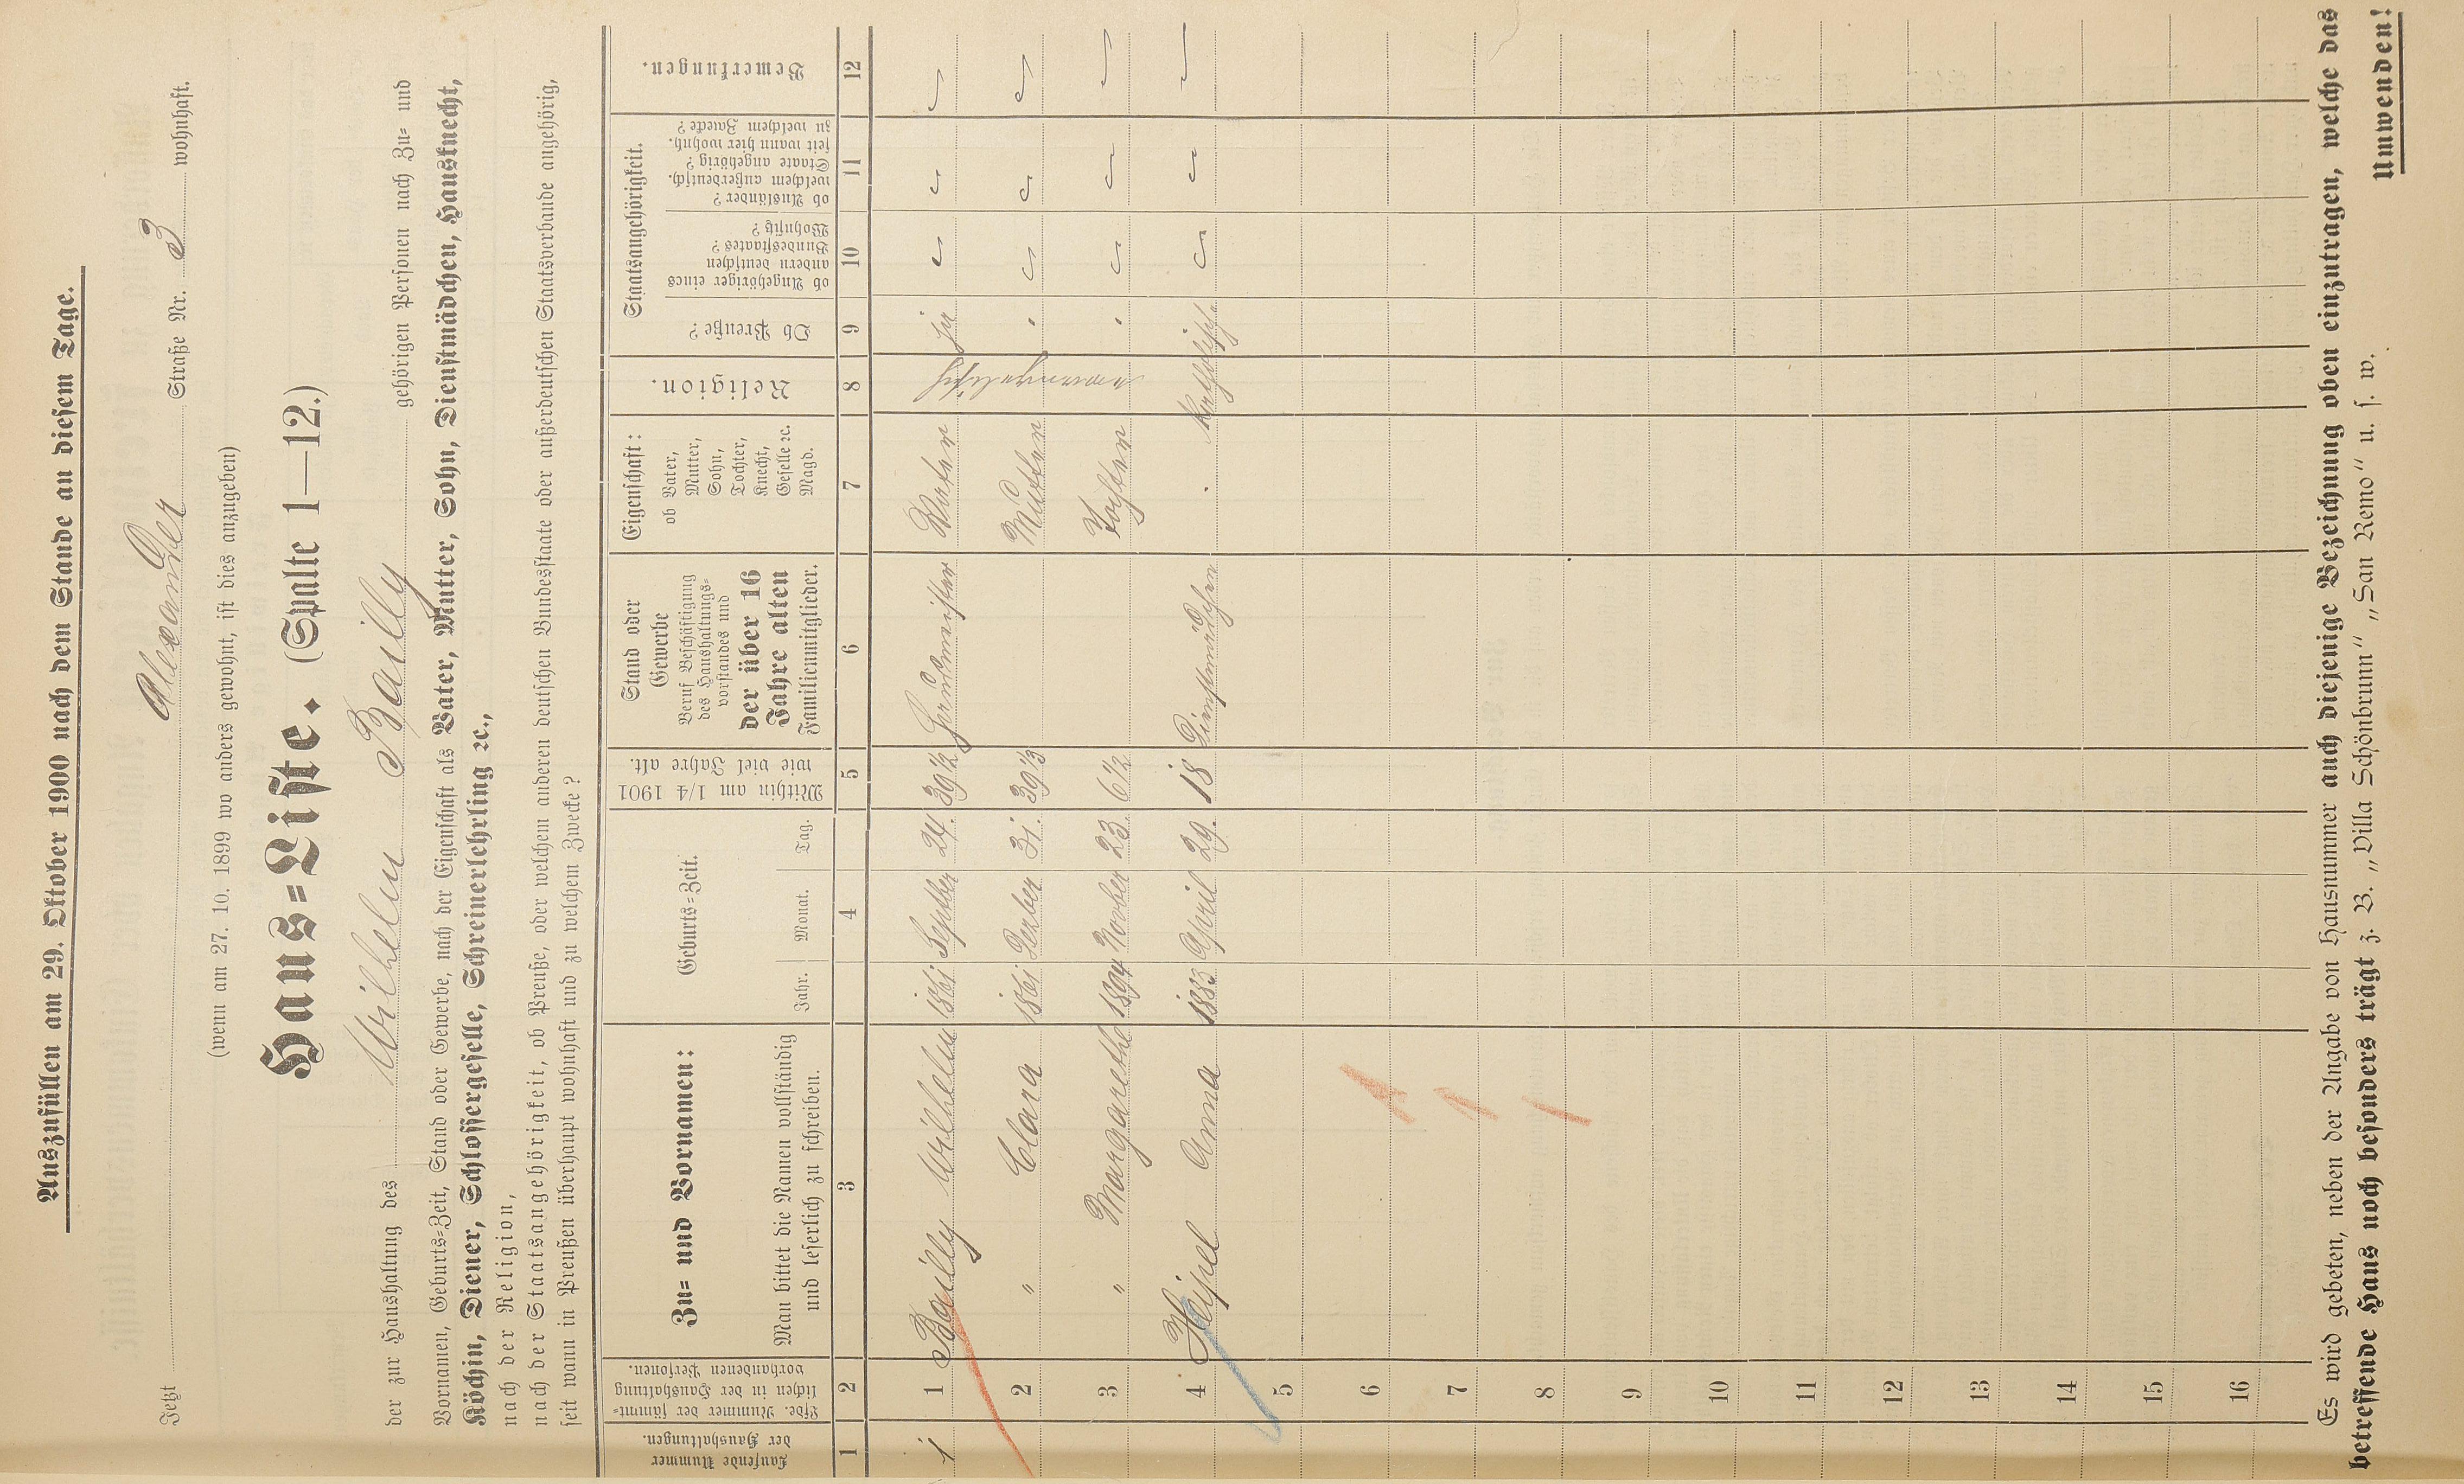 Auszufüllen am 29. Oktober 1900 nach dem Stande an diesem Tage.
Jetzt Alexander Straße Nr. 3 wohnhaft.
(wenn am 27. 10. 1899 wo anders gewohnt, ist dies anzugeben)
Haus=Liste. (Spalte 1—12.)
der zur Haushaltung des Wilhelm Bailly gehörigen Personen nach Zu= und
Vornamen, Geburts=Zeit, Stand oder Gewerbe, nach der Eigenschaft als Vater, Mutter, Sohn, Dienstmädchen, Hausknecht,
Köchin, Diener, Schlossergeselle, Schreinerlehrling ꝛc.,
nach der Religion,
nach der Staatsangehörigkeit, ob Preuße, oder welchem anderen deutschen Bundesstaate oder außerdeutschen Staatsverbande angehörig,
seit wann in Preußen überhaupt wohnhaft und zu welchem Zwecke?
Laufende Nummer
der Haushaltungen.
Lfde. Nummer der sämmt=
lichen in der Haushaltung
vorhandenen Personen.
Zu= und Vornamen:
Man bittet die Namen vollständig
und leserlich zu schreiben.
Geburts=Zeit.
Jahr. Monat. Tag.
Mithin am 1/4 1901
wie viel Jahre alt.
Stand oder
Gewerbe
Beruf Beschäftigung
des Haushaltungs=
vorstandes und
der über 16
Jahre alten
Familienmitglieder.
Eigenschaft:
ob Vater,
Mutter,
Sohn,
Tochter,
Knecht,
Geselle ꝛc.
Magd.
Religion.
Staatsangehörigkeit.
Ob Preuße?
ob Angehöriger eines
andern deutschen
Bundesstaates?
Wohnsitz?
ob Ausländer?
welchem außerdeutsch.
Staate angehörig?
seit wann hier wohnh.
zu welchem Zwecke?
Bemerkungen.
1 2 3 4 5 6 7 8 9 10 11 12
1 1 Bailly Wilhelm 1861 Septber 24. 39 1/2 Hausmeister Vater evangelisch
2 " Clara 1861 Dezber 31. 39 1/3 Mutter "
3 " Margarethe 1894 Novber 23. 6 1/2 Tochter "
4 Heipel Anna 1883 April 29. 18 Dienstmädchen Katholisch
5
6
7
8
9
10
11
12
13
14
15
16
Es wird gebeten, neben der Angabe von Hausnummer auch diejenige Bezeichnung oben einzutragen, welche das
betreffende Haus noch besonders trägt z. B. „Villa Schönbrunn" „San Remo" u. s. w.
Umwenden!